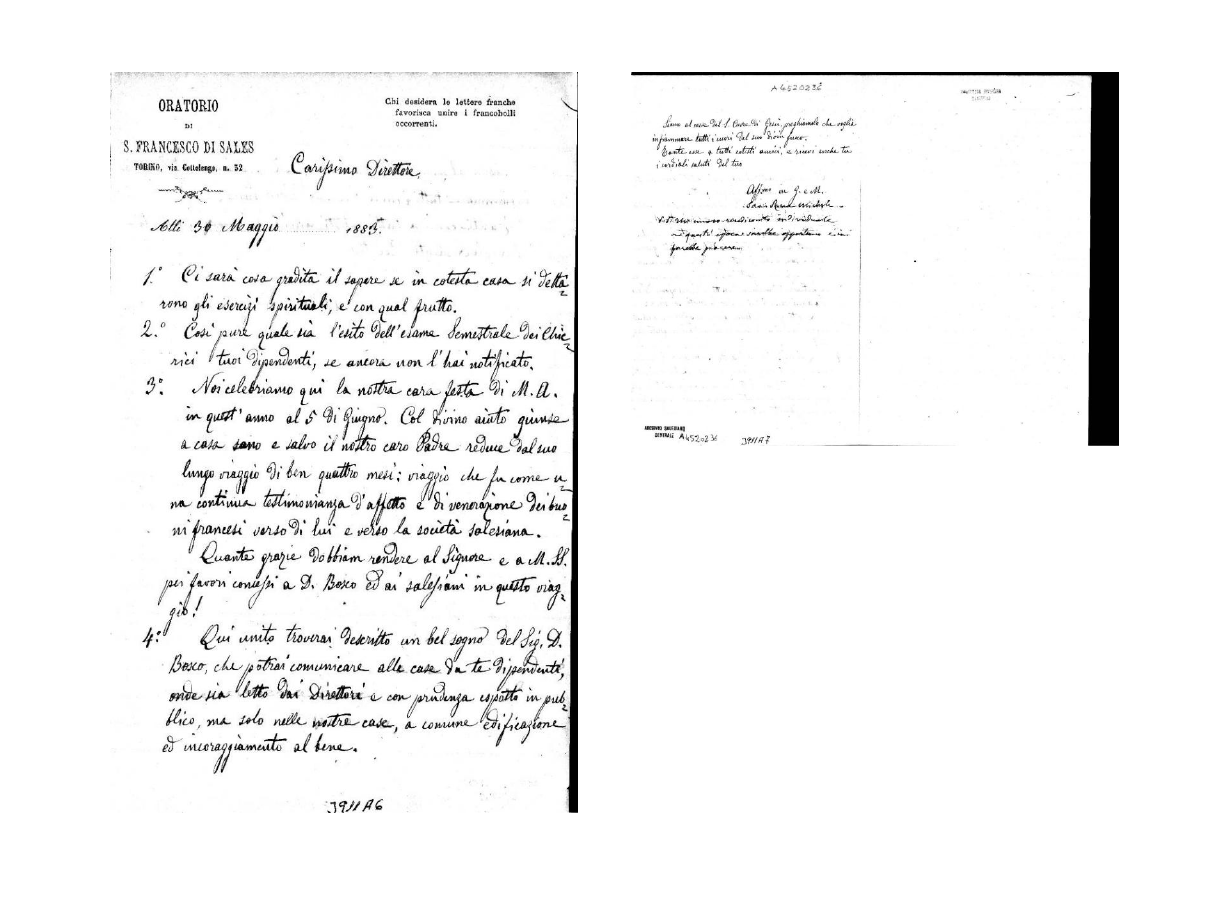 ORATORIO
DI
S. FRANCESCO DI SALES
TORINO, via Cottolengo, n. 32
Chi desidera le lettere franche
favorisca unire i francobolli
occorrenti.
Carissimo Direttore,
Alli 30 Maggio 1883.
1.° Ci sarà cosa gradita il sapere se in cotesta casa si detta=
rono gli esercizi spirituali, e con qual frutto.
2.° Così pure quale sia l'esito dell'esame Semestrale dei Chie=
rici tuoi dipendenti, se ancora non l'hai notificato.
3.° Noi celebriamo qui la nostra cara festa di M. A.
in quest'anno al 5 di Giugno. Col divino aiuto giunse
a casa sano e salvo il nostro caro Padre reduce dal suo
lungo viaggio di ben quattro mesi: viaggio che fu come u=
na continua testimonianza d'affetto e di venerazione dei buo=
ni francesi verso di lui e verso la società salesiana.
Quante grazie dobbiam rendere al Signore e a M. SS.
pei favori concessi a D. Bosco ed ai salesiani in questo viag=
gio!
4.° Qui unito troverai descritto un bel sogno del Sig. D.
Bosco, che potrai comunicare alle case da te dipendenti,
onde sia letto dai Direttori e con prudenza esposto in pub=
blico, ma solo nelle nostre case, a comune edificazione
ed incoraggiamento al bene.
3911A6
A4520236
Siamo al mese del S. Cuore di Gesù, preghiamolo che voglia
infiammare tutti i cuori del suo divin fuoco.
Tante cose a tutti cotesti amici, e ricevi anche tu
i cordiali saluti del tuo
Affmo in G. e M.
Sac. Rua Michele
individuale
in quest'epoca opportuno
ARCHIVIO SALESIANO
CENTRALE A4520236
3911A7